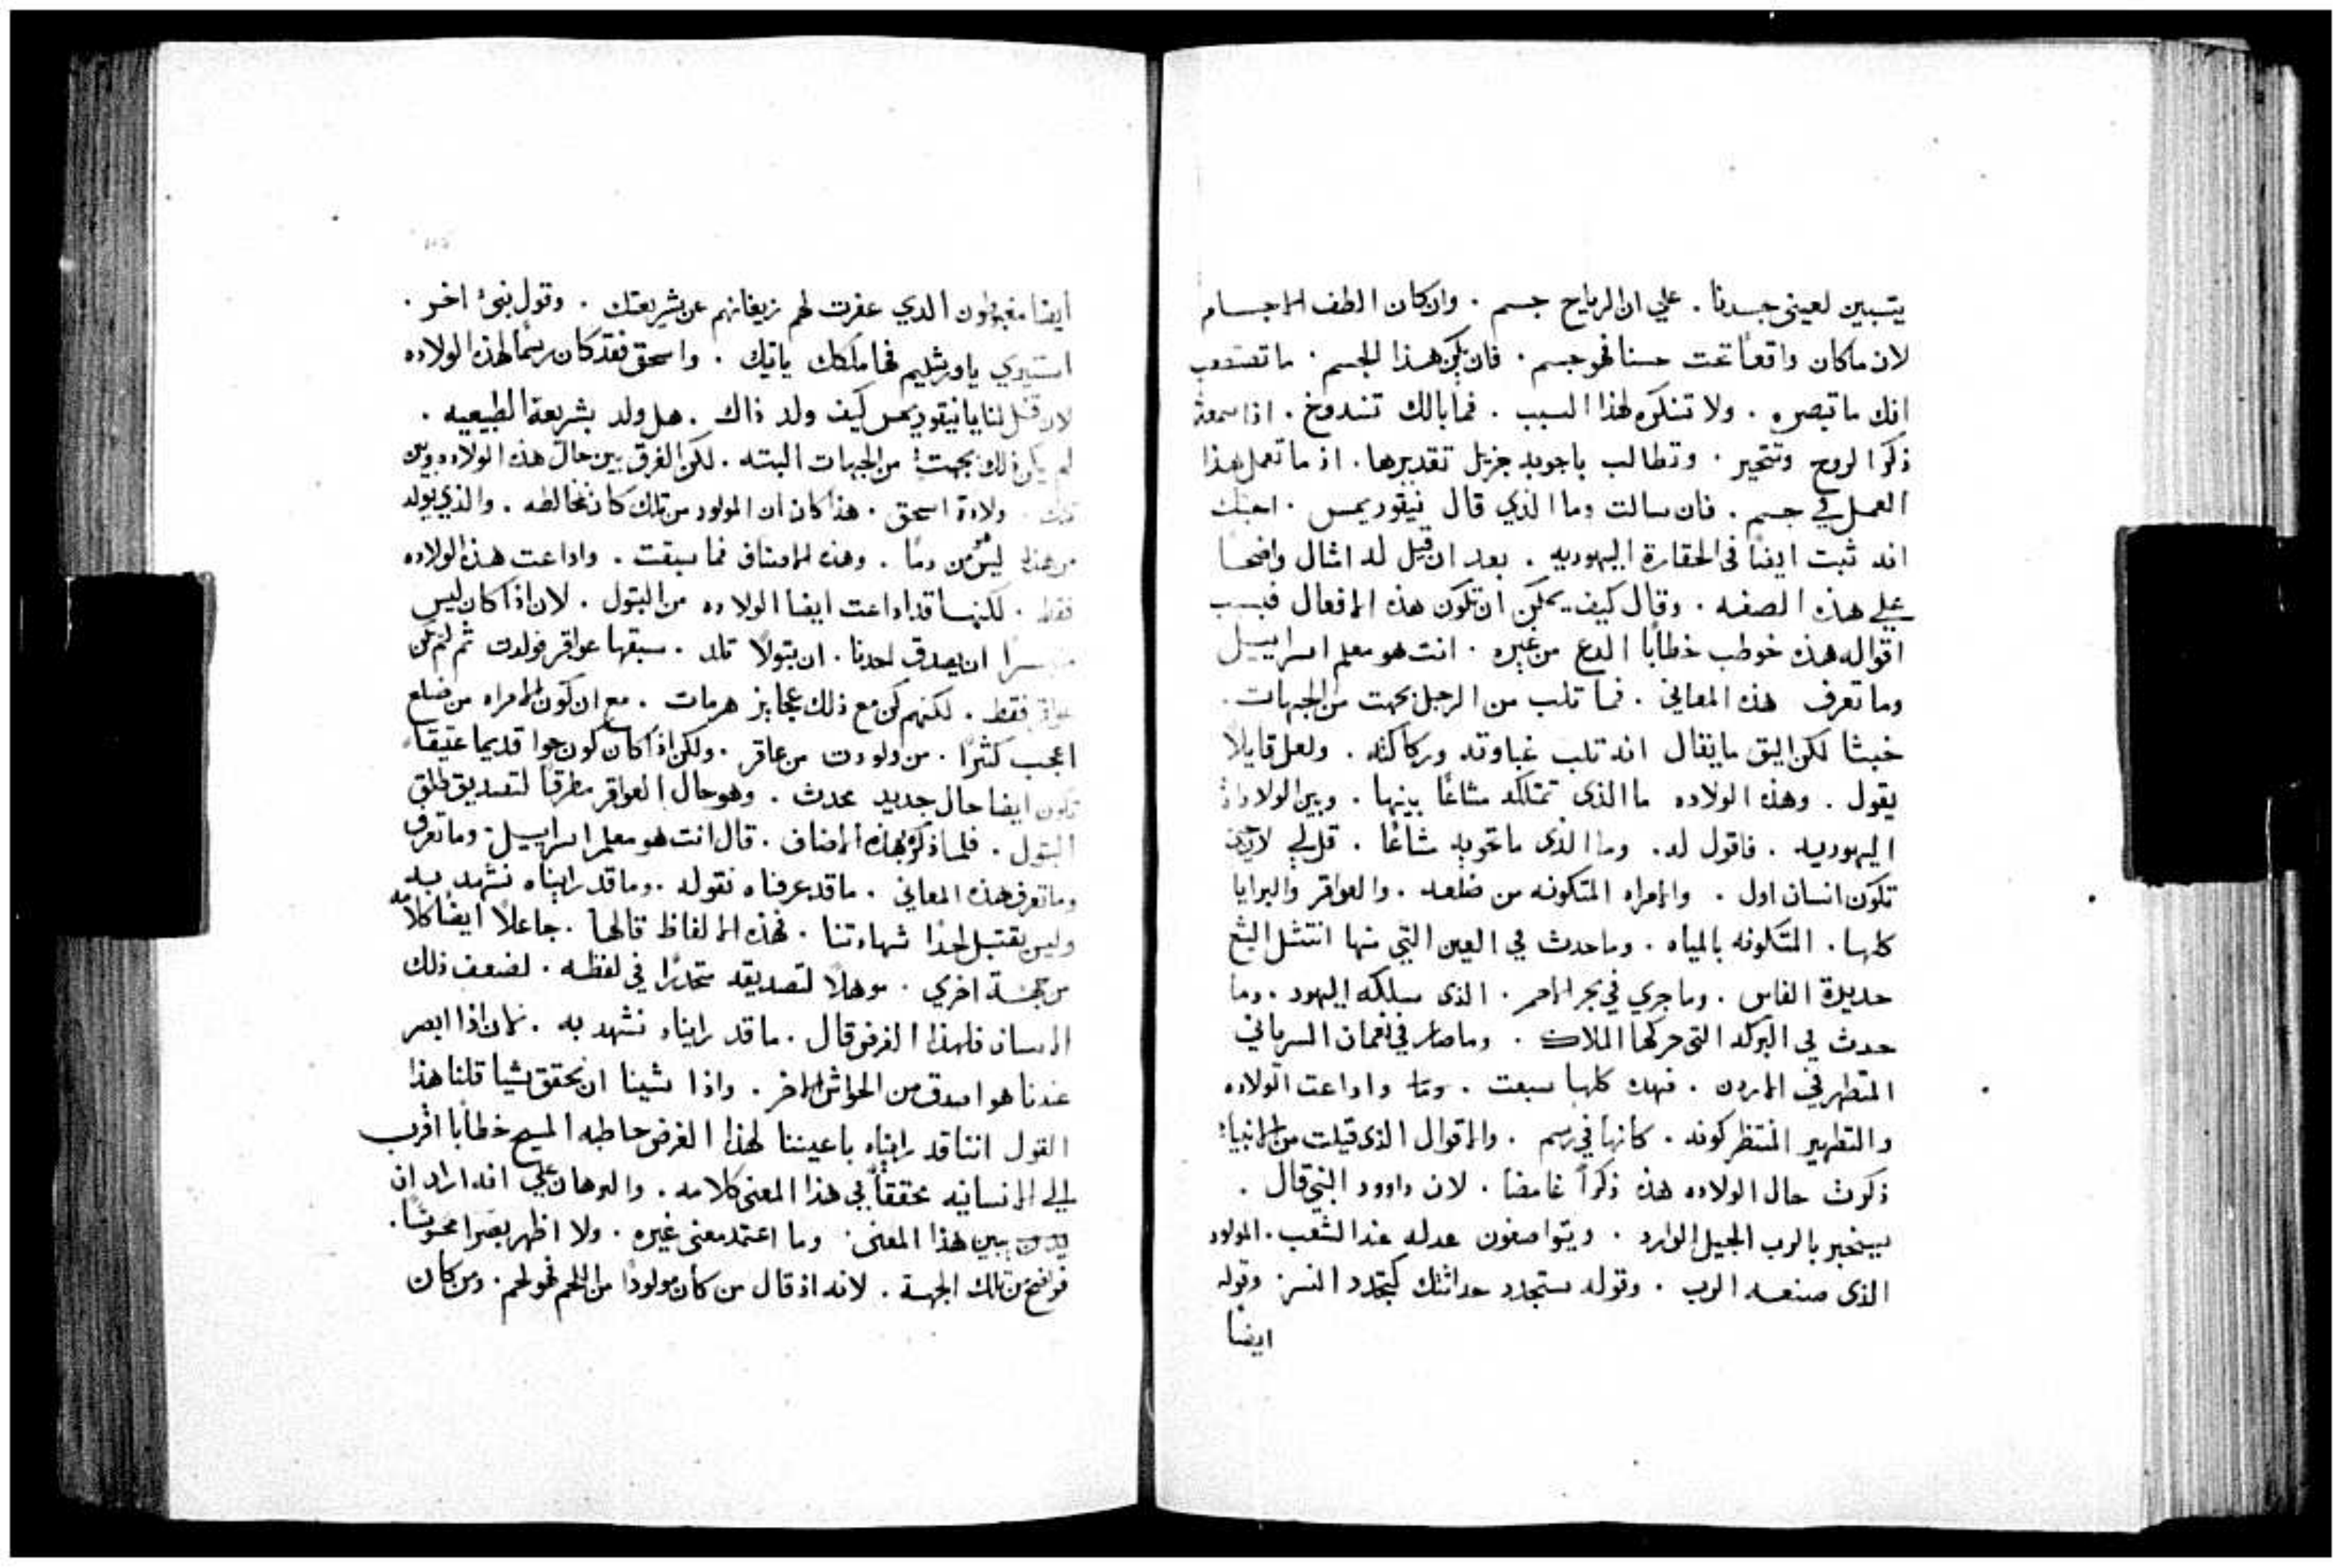 يتبين لعيني جسدنا . علي ان الرياح جسم . وان كان الطف الاجسام
لان ما كان واقعاً تحت حسنا فهو جسم . فان يكن هذا الجسم . ما تستصعب
انك ما تبصره . ولا تنكره لهذا السبب . فما بالك تندوخ . اذا سمعت
ذكر الروح وتتحير . وتطالب باجوبه جزيل تقديرها . اذ ما تعمل هذا
العمل في جسم . فان سالت وما الذي قال نيقوديمس . اجبتك
انه ثبت ايضاً في الحقارة اليهوديه . بعد ان قيل له امثال واضحا
علي هذه الصفه . وقال كيف يمكن ان تكون هذه الافعال فبسبب
اقواله هذه خوطب خطاباً الدع من غيره . انت هو معلم اسراييل
وما تعرف هذه المعاني . فما ثلب من الرجل بجهت من الجهات .
خبثا لكن اليق ما يقال انه ثلب غباوته وركاكته . ولعل قايلاً
يقول . وهذه الولاده ما الذي تمتلكه مشاعًا بينها . وبين الولادة
اليهوديه . فاقول له . وما الذي ما تحويه مشاعًا . قل لي لان
تكون انسان اول . والامراه المتكونه من ضلعه . والعواقر والبرايا
كلها . المتكونه بالمياه . وما حدث في العين التي منها انتشل اليشع
حديدة الفاس . وما جري في بحر الاحمر . الذي سلكه اليهود . وما
حدث في البركه التي حركها الملاك . وما صار في نعمان السرياني
المتطهر في الاردن . فهده كلها سبقت . واداعت الولاده
والتطهير المنتظر كونه . كانها في رسم . والاقوال الذي قيلت من الانبياء
ذكرت حال الولاده هذه ذكراً غامضا . لان داوود النبي قال .
سيخبر بالرب الجيل الوارد . ويتواصفون عدله عند الشعب . المولود
الذي صنعه الرب . وقوله ستجدد حداثتك كتجدد النسر . وقوله
ايضا
ايضا مغبوطون الدي غفرت لهم زيغانهم عن شريعتك . وقول نبي اخر .
استنيري يا اورشليم فها ملكك ياتيك . واسحق فقد كان رسمًا لهذه الولاده
لان قل لنا يا نيقوديمس كيف ولد ذاك . هل ولد بشريعة الطبيعيه .
لم يكن ذلك بجهت من الجهات البته . لكن الفرق بين حال هذه الولاده وبين
ولادة اسحق . هذا كان ان المولود من تلك كان مخالطه . والذي يولد
من هذه ليس من دمًا . وهذه الاصناف فما سبقت . واداعت هذه الولاده
فقط . لكنها قد اداعت ايضا الولاده من البتول . لان اذا كان ليس
ان يصدق احدنا . ان بتولاً تلد . سبقها عواقر فولدت ثم لم تكن
عواقر فقط . لكنهم كن مع ذلك عجايز هرمات . مع ان كون الامراه من ضلع
اعجب كثيرًا . من ولودت من عاقر . ولكن اذا كان كون حوا قديما عتيقا
تكون ايضا حال جديد محدث . وهو حال العواقر مطرقاً لتصديق طلق
البتول . فلما ذكره بهذه الاصناف . قال انت هو معلم اسراييل . وما تعرف
وما تعرف هذه المعاني . ما قد عرفناه نقوله . وما قد رايناه نشهد به
وليس يقتبل احدًا شهادتنا . فهذه الالفاظ قالها . جاعلاً ايضًا كلامه
من جهة اخري . موهلاً لتصديقه متحدرًا في لفظه . لضعف ذلك
الانسان فلهذا الغرض قال . ما قد رايناه نشهد به . لان اذا ابصر
عندنا هو اصدق من الحواش الاخر . واذا شينا ان نحقق شيا قلنا هذا
القول اننا قد رايناه باعيننا لهذا الغرض خاطبه المسيح خطابًا اقرب
الي الانسانيه محققاً في هذا المعني كلامه . والبرهان علي انه اراد ان
يبين هذا المعني . وما اعتمد معني غيره . ولا اظهر بصرا محسوسًا .
فواضح من تلك الجهة . لانه اذ قال من كان مولودًا من اللحم فهو لحم . ومن كان